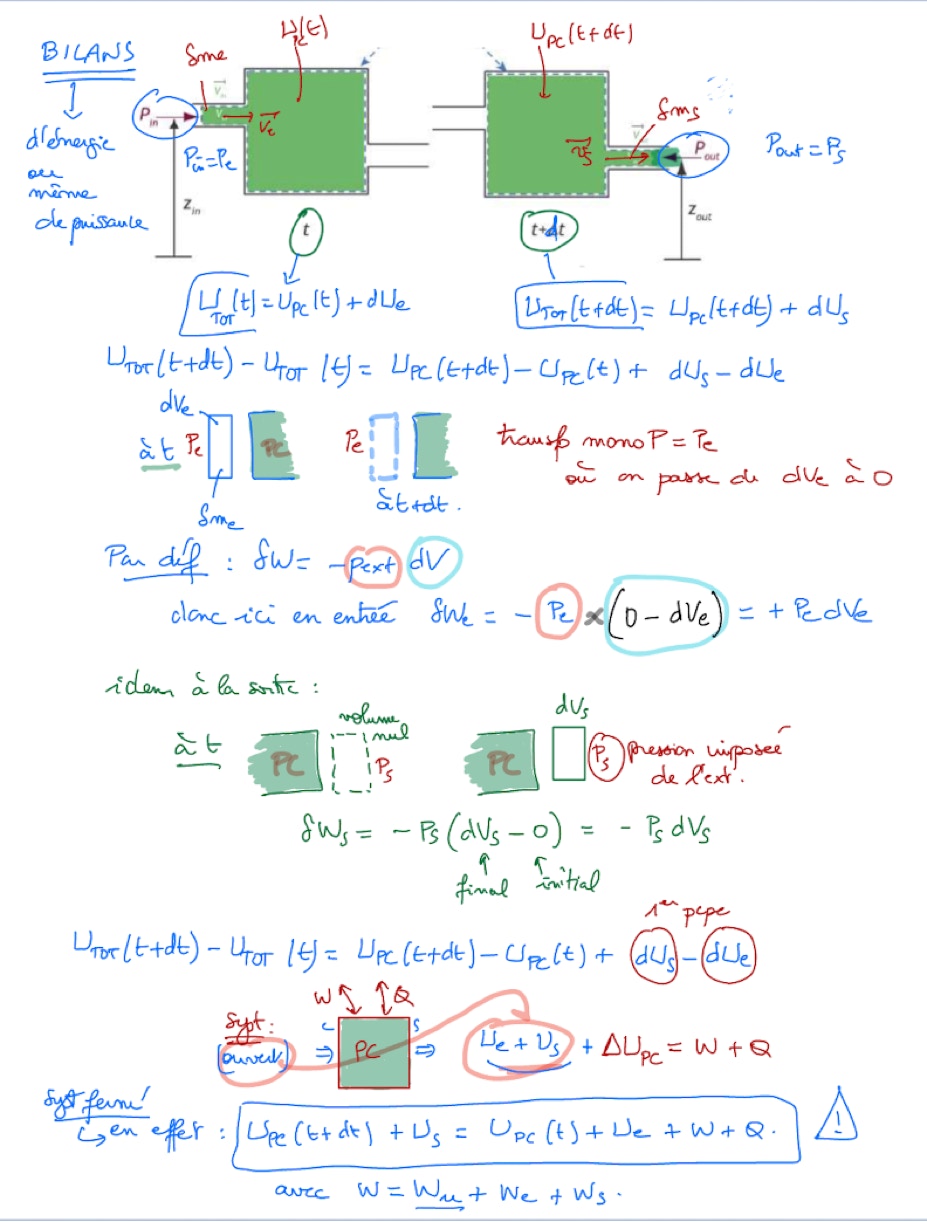 BILANS
d'énergie
ou
même
de puissance
δme
U_PC(t)
P_in
v_e
P_in = P_e
z_in
t
U_PC(t+dt)
δms
v_s
P_out
P_out = P_s
z_out
t+dt
U_TOT(t) = U_PC(t) + dU_e
U_TOT(t+dt) = U_PC(t+dt) + dU_s
U_TOT(t+dt) - U_TOT(t) = U_PC(t+dt) - U_PC(t) + dU_s - dU_e
dV_e
à t P_e PC
δm_e
P_e
à t+dt.
transfo mono P = P_e
où on passe de dV_e à 0
Par déf : δW = -p_ext dV
donc ici en entrée δW_e = - P_e × (0 - dV_e) = + P_e dV_e
idem à la sortie :
à t PC
volume
nul
P_s
PC
dV_s
P_s pression imposée
de l'ext.
δW_s = - P_s (dV_s - 0) = - P_s dV_s
final initial
1er pcpe
U_TOT(t+dt) - U_TOT(t) = U_PC(t+dt) - U_PC(t) + dU_s - dU_e
W Q
Syst :
(ouvert) ⇒ e PC s ⇒ U_e + U_s + ΔU_PC = W + Q
Syst fermé
↳ en effet : U_PC(t+dt) + U_s = U_PC(t) + U_e + W + Q.
!
avec W = W_u + W_e + W_s.